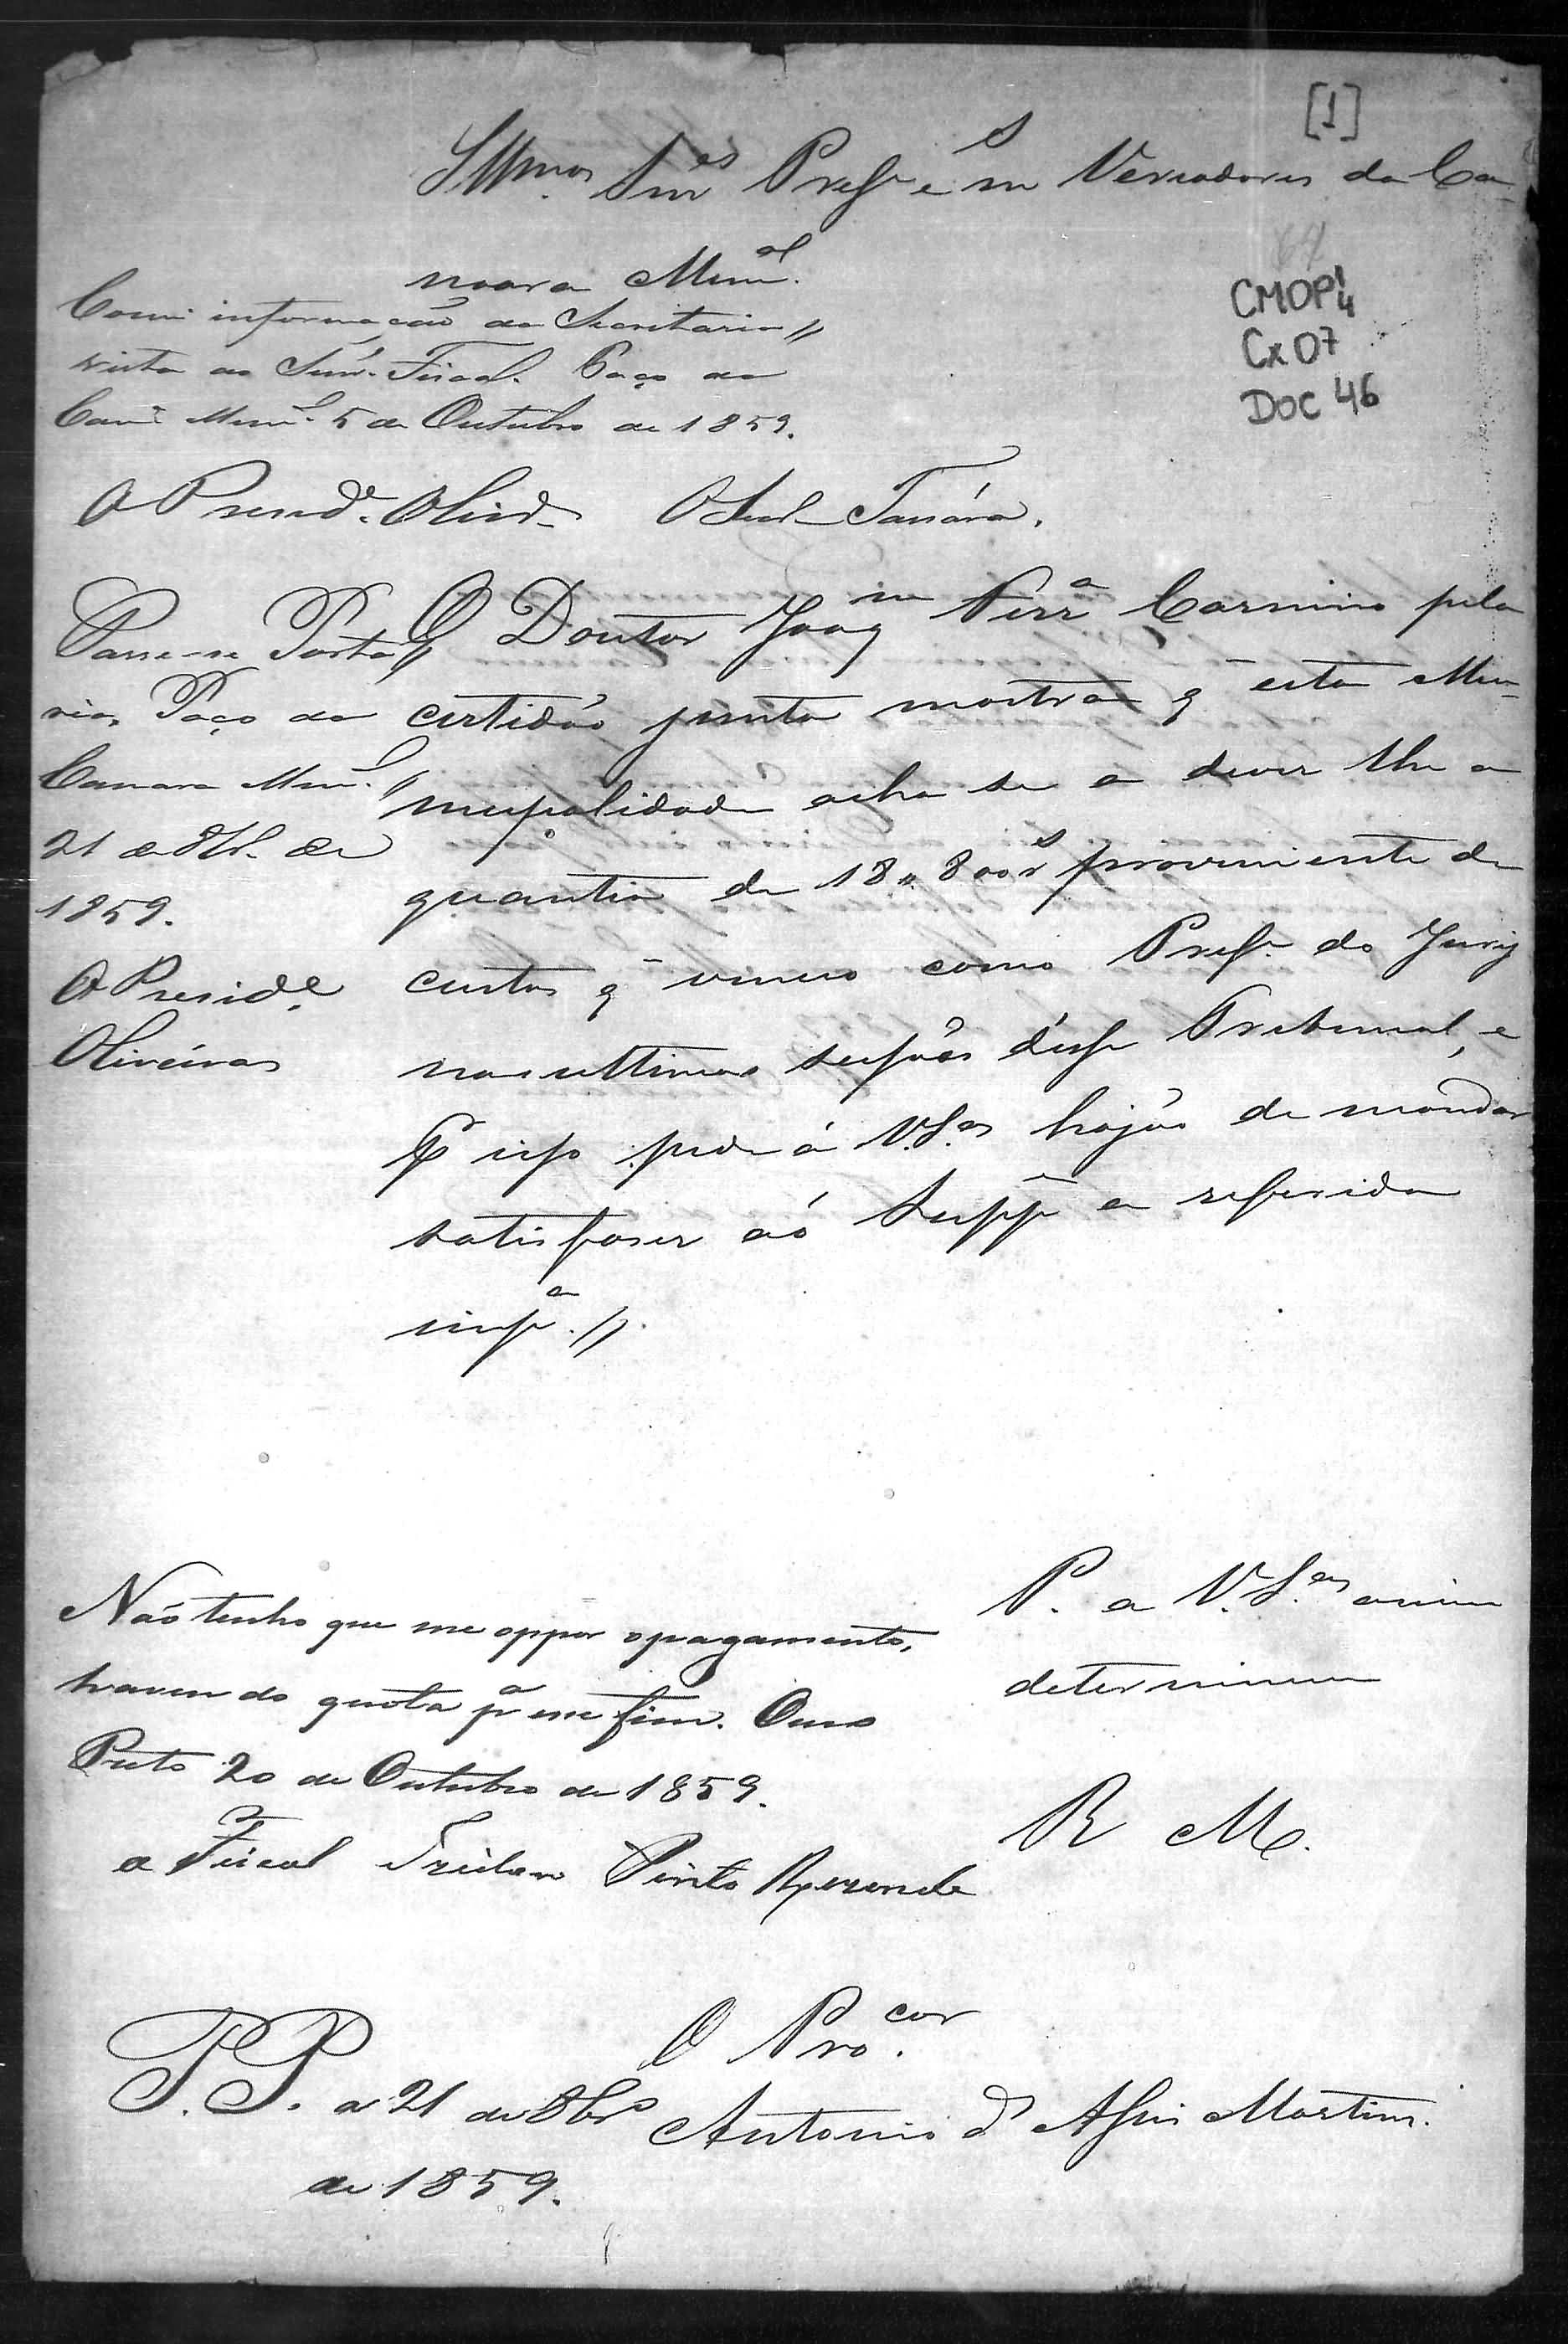 [1]
Illmos Snres Presde e mais Vereadores da Ca-
mara Munal.
CMOP 1/4
Cx 07
DOC 46
Com informação da Secretaria,,
vista ao Snr. Fiscal. Paço da
Camª Munl. 5 de Outubro de 1859.
O Presid.e Olivrª O Secr Tassára.
Passe-se Porta,,
ria, Paço da
Camara Munl.
21 de 8br. de
1859.
O Presid.e
Oliveira
O Doutor Joaqm Ferrª Carneiro pela
certidão junta mostra q̃ esta Mu-
nicipalidade acha se a dever lhe a
quantia de 18,,800rs proveniente de
custas q̃ venceo como Presde do Jury
nas ultimas sessões desse Tribunal, e
P isso pede á V.Sas hajão de mandar
satisfaser aó Suppe a referida
impa.,,
P. a V.S.as assim
determinem
R Me.
Não tenho que me oppor o pagamento,
havendo quota pa esse fim. Ouro
Preto 20 de Outubro de 1859.
o Fiscal Tristão Pinto Rezende
P.P. a 21 de 8bro
de 1859.
O Procor.
Antonio d' Assis Martins.